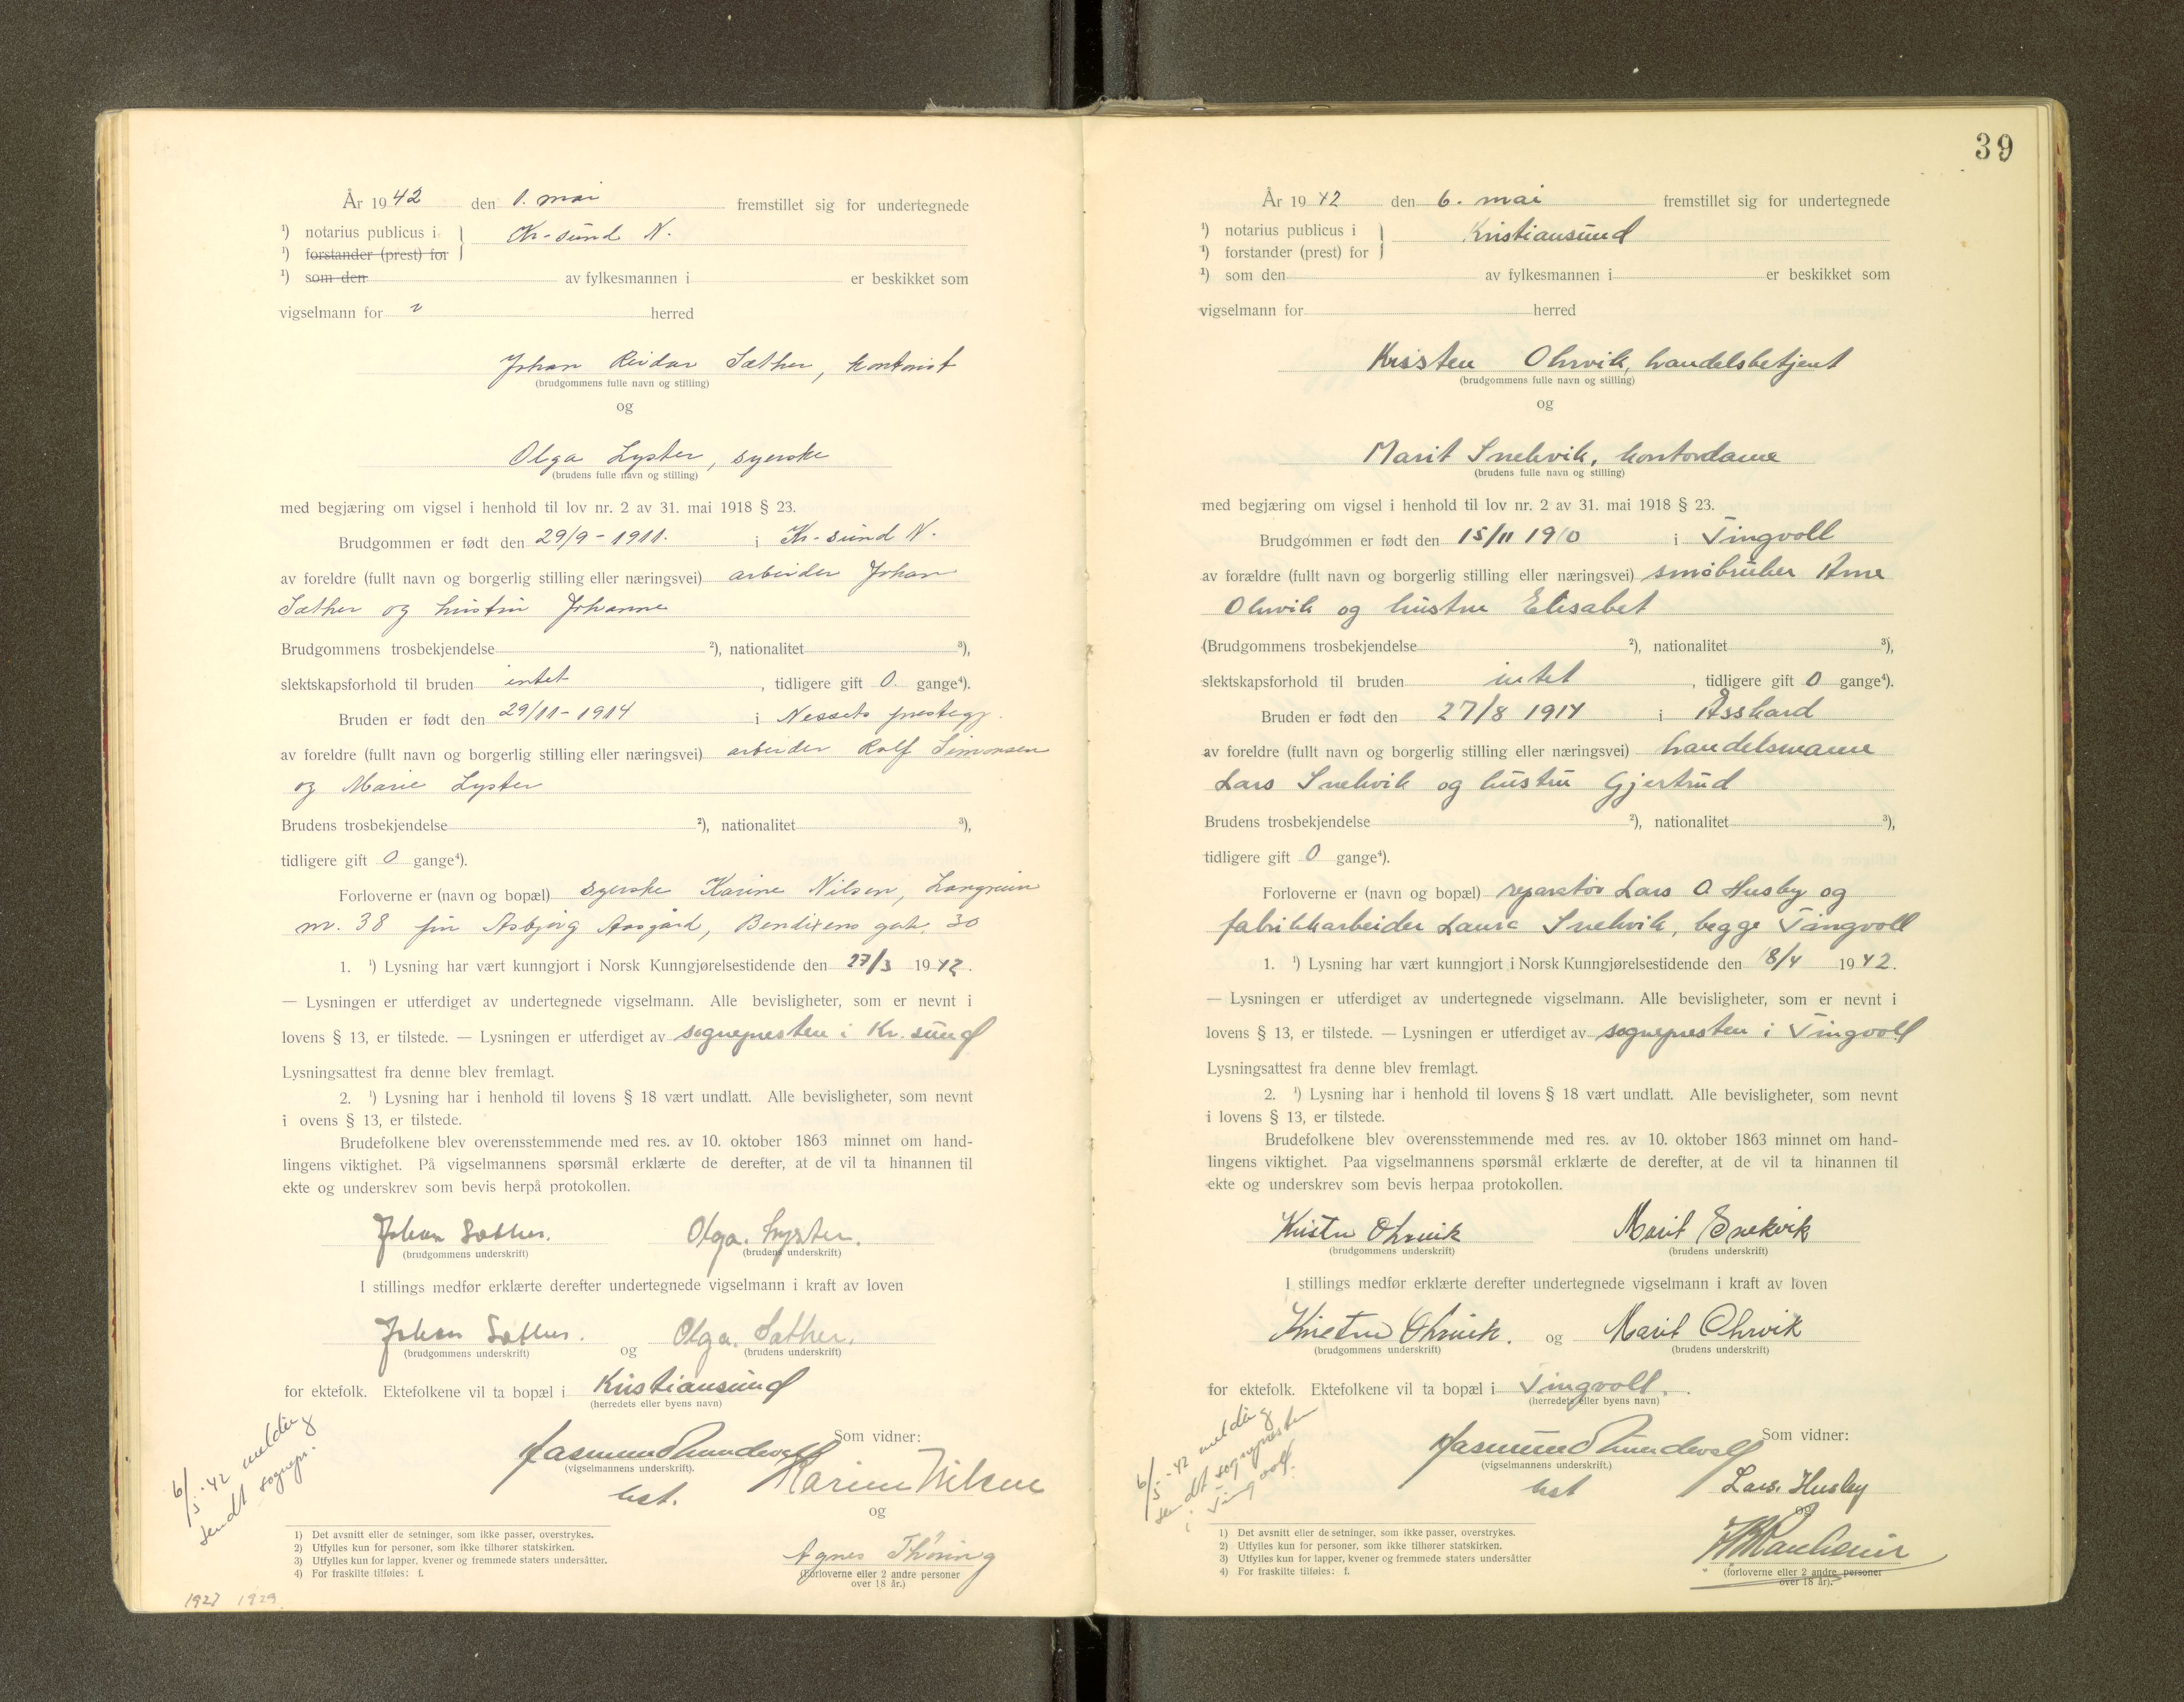 År 1942 den 1. mai fremstillet sig for undertegnede
¹) notarius publicus i Kr-sund N.
¹) forstander (prest) for
¹) som den av fylkesmannen i er beskikket som
vigselmann for herred
Johan Reidar Sæther, kontorist
(brudgommens fulle navn og stilling)
og
Olga Lyster, syerske
(brudens fulle navn og stilling)
med begjæring om vigsel i henhold til lov nr. 2 av 31. mai 1918 § 23.
Brudgommen er født den 29/9-1911. i Kr-sund N.
av foreldre (fullt navn og borgerlig stilling eller næringsvei) arbeider Johan
Sæther og hustru Johanne
Brudgommens trosbekjendelse ²), nationalitet ³),
slektskapsforhold til bruden intet, tidligere gift 0. gange⁴).
Bruden er født den 29/11-1914 i Nessets prestegj.
av foreldre (fullt navn og borgerlig stilling eller næringsvei) arbeider Rolf Simonsen
og Marie Lyster
Brudens trosbekjendelse ²), nationalitet ³),
tidligere gift 0 gange⁴).
Forloverne er (navn og bopæl) syerske Karine Nilsen, Langveien
nr. 38 frn Asbjørg Aasgård, Bendixens gate 30
1. ¹) Lysning har vært kunngjort i Norsk Kunngjørelsestidende den 27/3 1942.
— Lysningen er utferdiget av undertegnede vigselmann. Alle bevisligheter, som er nevnt i
lovens § 13, er tilstede. — Lysningen er utferdiget av sognepresten i Kr. sund
Lysningsattest fra denne blev fremlagt.
2. ¹) Lysning har i henhold til lovens § 18 vært undlatt. Alle bevisligheter, som nevnt
i ovens § 13, er tilstede.
Brudefolkene blev overensstemmende med res. av 10. oktober 1863 minnet om hand-
lingens viktighet. På vigselmannens spørsmål erklærte de derefter, at de vil ta hinannen til
ekte og underskrev som bevis herpå protokollen.
Johan Sæther. Olga. Lyster.
(brudgommens underskrift) (brudens underskrift)
I stillings medfør erklærte derefter undertegnede vigselmann i kraft av loven
Johan Sæther. og Olga. Sæther.
(brudgommens underskrift) (brudens underskrift)
for ektefolk. Ektefolkene vil ta bopæl i Kristiansund
(herredets eller byens navn)
Som vidner:
(vigselmannens underskrift).
Karine Nilsen
og
Agnes Thoring
(Forloverne eller 2 andre personer
over 18 år.)
6/5-42 melding
sendt sognepr.
1) Det avsnitt eller de setninger, som ikke passer, overstrykes.
2) Utfylles kun for personer, som ikke tilhører statskirken.
3) Utfylles kun for lapper, kvener og fremmede staters undersåtter.
4) For fraskilte tilføies: f.
1927 1929
39
År 1942 den 6. mai fremstillet sig for undertegnede
¹) notarius publicus i Kristiansund
¹) forstander (prest) for
¹) som den av fylkesmannen i er beskikket som
vigselmann for herred
Kristen Ohrvik, handelsbetjent
(brudgommens fulle navn og stilling)
og
Marit Snekvik, kontordame
(brudens fulle navn og stilling)
med begjæring om vigsel i henhold til lov nr. 2 av 31. mai 1918 § 23.
Brudgommen er født den 15/11 1910 i Tingvoll
av forældre (fullt navn og borgerlig stilling eller næringsvei) småbruker Arne
Ohrvik og hustru Elisabet
(Brudgommens trosbekjendelse ²), nationalitet ³),
slektskapsforhold til bruden intet, tidligere gift 0 gange⁴).
Bruden er født den 27/8 1914 i Åsskard
av foreldre (fullt navn og borgerlig stilling eller næringsvei) handelsmann
Lars Snekvik og hustru Gjertrud
Brudens trosbekjendelse ²), nationalitet ³),
tidligere gift 0 gange⁴).
Forloverne er (navn og bopæl) reparatør Lars O. Husby og
fabrikkarbeider Laura Snekvik, begge Tingvoll
1. ¹) Lysning har vært kunngjort i Norsk Kunngjørelsestidende den 8/4 1942.
— Lysningen er utferdiget av undertegnede vigselmann. Alle bevisligheter, som er nevnt i
lovens § 13, er tilstede. — Lysningen er utferdiget av sognepresten i Tingvoll
Lysningsattest fra denne blev fremlagt.
2. ¹) Lysning har i henhold til lovens § 18 vært undlatt. Alle bevisligheter, som nevnt
i lovens § 13, er tilstede.
Brudefolkene blev overensstemmende med res. av 10. oktober 1863 minnet om hand-
lingens viktighet. Paa vigselmannens spørsmål erklærte de derefter, at de vil ta hinannen til
ekte og underskrev som bevis herpaa protokollen.
Kristen Ohrvik Marit Snekvik
(brudgommens underskrift) (brudens underskrift)
I stillings medfør erklærte derefter undertegnede vigselmann i kraft av loven
Kristen Ohrvik. og Marit Ohrvik
(brudgommens underskrift) (brudens underskrift)
for ektefolk. Ektefolkene vil ta bopæl i Tingvoll.
(herredets eller byens navn)
Som vidner:
(vigselmannens underskrift.)
Lars. Husby
og
(forloverne eller 2 andre personer
over 18 år).
6/5-42 melding
sendt sognepresten
i Tingvoll.
1) Det avsnitt eller de setninger, som ikke passer, overstrykes.
2) Utfylles kun for personer, som ikke tilhører statskirken.
3) Utfylles kun for lapper, kvener og fremmede staters undersåtter
4) For fraskilte tilføies: f.